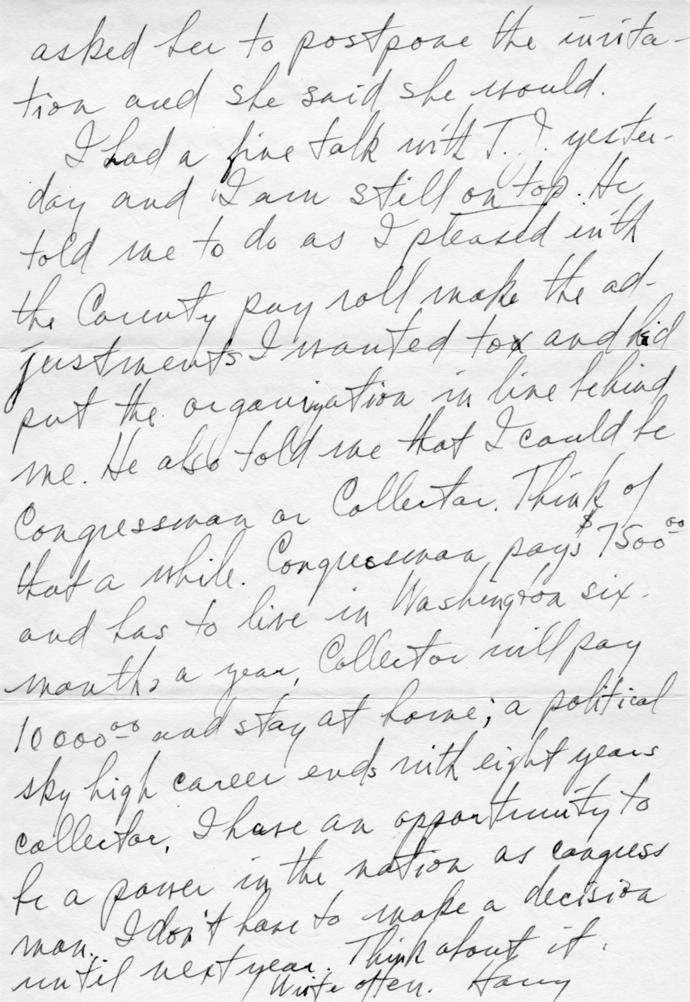 asked her to postpone the invita-
tion and she said she would.
I had a fine talk with T. J. yester-
day and I am still on top. He
told me to do as I pleased with
the County pay roll make the ad-
justments I wanted to and he'd
put the organization in line behind
me. He also told me that I could be
Congressman or Collector. Think of
that a while. Congressman pays $7500 00
and has to live in Washington six
months a year, Collector will pay
10000 00 and stay at home; a political
sky high career ends with eight years
collector. I have an opportunity to
be a power in the nation as congress
man. I don't have to make a decision
until next year. Think about it.
Write often. Harry